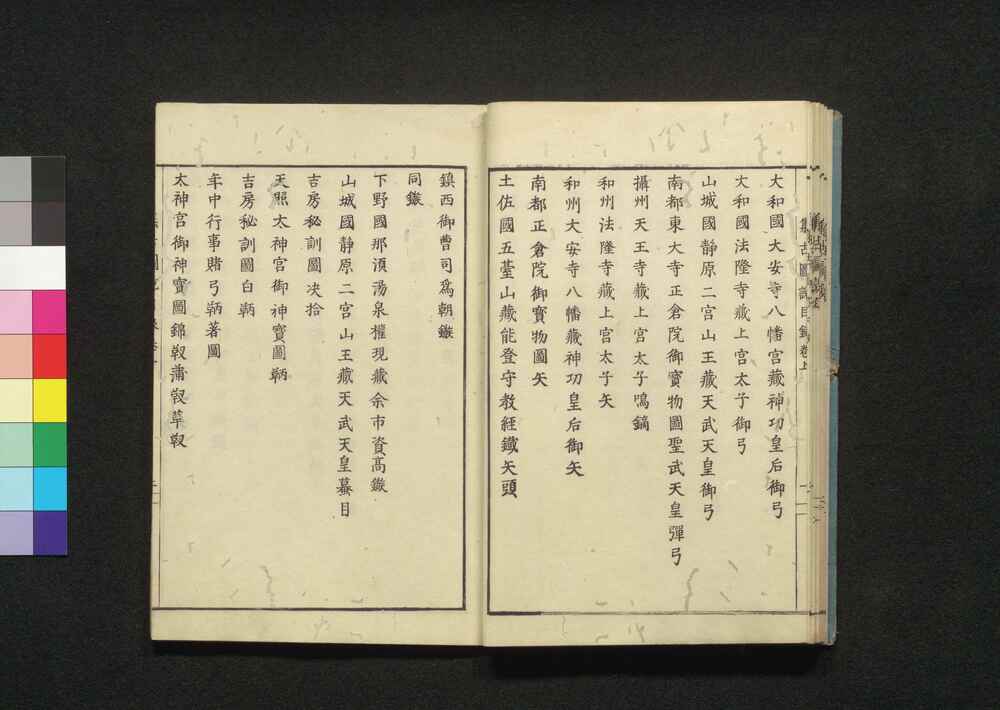 集古圖説目錄卷上
大和國大安寺八幡宮藏神功皇后御弓
大和國法隆寺藏上宮太子御弓
山城國靜原二宮山王藏天武天皇御弓
南都東大寺正倉院御寶物圖聖武天皇彈弓
攝州天王寺藏上宮太子鳴鏑
和州法隆寺藏上宮太子矢
和州大安寺八幡藏神功皇后御矢
南都正倉院御寶物圖矢
土佐國五臺山藏能登守教經鐵矢頭
鎮西御曹司爲朝鏃
同鏃
下野國那須湯泉權現藏余市資高鏃
山城國靜原二宮山王藏天武天皇蟇目
吉房秘訓圖決拾
天照太神宮御神寶圖鞆
吉房秘訓圖白鞆
年中行事賭弓鞆著圖
太神宮御神寶圖錦靫蒲靫革靫